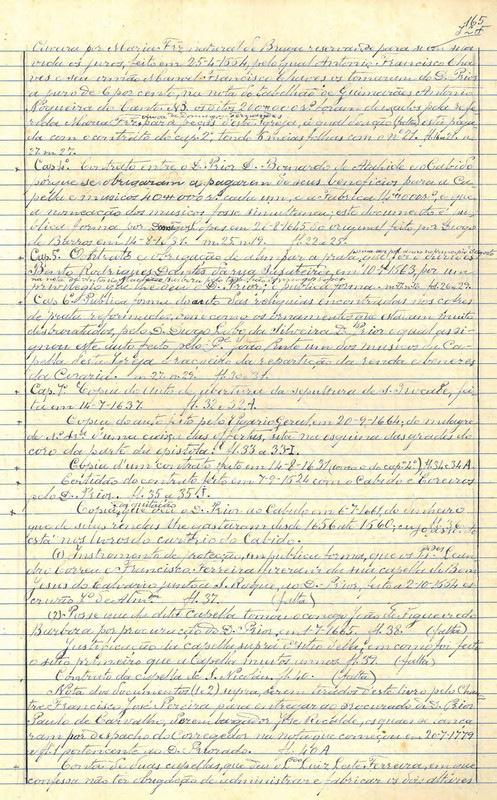 165
por Maria Frz natural de Braga reservando para si em sua
vida os juros, feito em 25-4-1554, pelo qual Antonio Francisco Cha-
ves e seu irmão Manoel Francisco Chaves os tomaram do D. Prior
a juro de 6 por cento, na nota do tabellião de Guimarães Antonio
Nogueira do Canto. NB. os ditos 200:000 rs foram deixados pela re-
ferida Maria Frz, para desta Igreja, á qual doação está
da com o contrato de cap. 2º, tendo 6 meias folhas com o nº 21.
27. m 27.
Cap. 4º. Contrato entre o D. Prior D. Bernardo de Ataide e o Cabido
porque se obrigaram a pagarem de seus beneficios para a Ca-
pella e musicos 40:000 rs cada um, e a Fabrica 14:000 rs, e que
a nomeação dos musicos fosse simultanea; este documento é pu-
blica forma por Lopes em 26-8-1645 do original feito por Diogo
de Barros em 14-8-1637. m 25. nº 19. fl. 22 e 25.
Cap. 5º. Contrato e obrigação de alimpar a prata, que fez o ourives
Bento Rodrigues Dantas da rua Sapateira, em 10-4-1663, por um
privilegio que lhe deu o D. Prior; é publica forma. fl. 26 e 29.
Cap. 6º. Publica forma do auto das reliquias encontradas nos cofres
de prata reformados, bem como os ornamentos que estavam muito
desbaratados, pelo D. Diogo Lobo da Silveira D. Prior, o qual assi-
gnou este auto feito pelo Pe João um dos musicos da Ca-
pella desta Igreja e da repartição da renda e benezes
da Coraria. m 27. m 29. fl. 30 e 31.
Cap. 7º. Copia do auto de abertura da sepultura de S. Torcato, fei-
ta em 14-7-1637. fl. 32 e 32 A.
Copia do auto feito pelo Vigario Geral, em 20-9-1664, do milagre
de Nª Srª d'uma caixa das offertas, sita na esquina das grades do
coro da parte da epistola. fl. 33 a 33 I.
Copia d'um contrato feito em 14-8-1637 (como o do cap. 4º) fl. 34 e 34 A.
Certidão do contrato feito em 7-9-1524 com o Cabido e Coreiros
pelo D. Prior. fl. 35 a 35 F.
Copia da quitação que deu o D. Prior ao Cabido em 6-7-1661, do dinheiro
que de seus rendas lhe gastaram desde 1656 até 1660; cuja
está nos livros do cartorio do Cabido.
(1) Instrumento de protecção, em publica forma, que os Ir.
dro Correa e Francisco Ferreira fizeram de sua capella do Bom
Jesus do Calvario junto a S. Roque, ao D. Prior, feito a 2-10-1654 es-
crivão de Alm. fl. 37. (falta)
(2) Posse que da dita capella tomou o conego João de Figueiredo
Barbosa por procuração do D. Prior, em 1-7-1665. fl. 38 (falta)
Justificação da capella supra e sitio della, em como foi feito
o sitio primeiro que a Capella muitos annos fl. 39. (falta)
Contrato da capella de S. Nicolau. fl. 40. (falta)
Nota dos documentos (1 e 2) supra, serem tirados deste livro pelo Chan-
tre Francisco José Pereira para entregar ao procurador do D. Prior
Paulo de Carvalho, Desembargador José Ricalde, os quaes se tiraram
por despacho do Corregedor na nota que começou em 20-7-1779
e fl. 1 pertencente ao D. Priorado. fl. 40 A
Conta de duas capellas, que deu o Pe Luiz Leite Ferreira, em que
confessa não ter obrigação de administrar e fabricar os dois altares